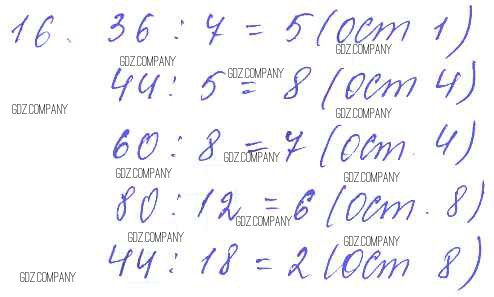 16. 36 : 7 = 5 (ост 1)
GDZ.COMPANY GDZ.COMPANY
44 : 5 = 8 (ост 4)
GDZ.COMPANY GDZ.COMPANY GDZ.COMPANY
60 : 8 = 7 (ост. 4)
GDZ.COMPANY GDZ.COMPANY GDZ.COMPANY
80 : 12 = 6 (ост. 8)
GDZ.COMPANY GDZ.COMPANY GDZ.COMPANY
44 : 18 = 2 (ост 8)
GDZ.COMPANY